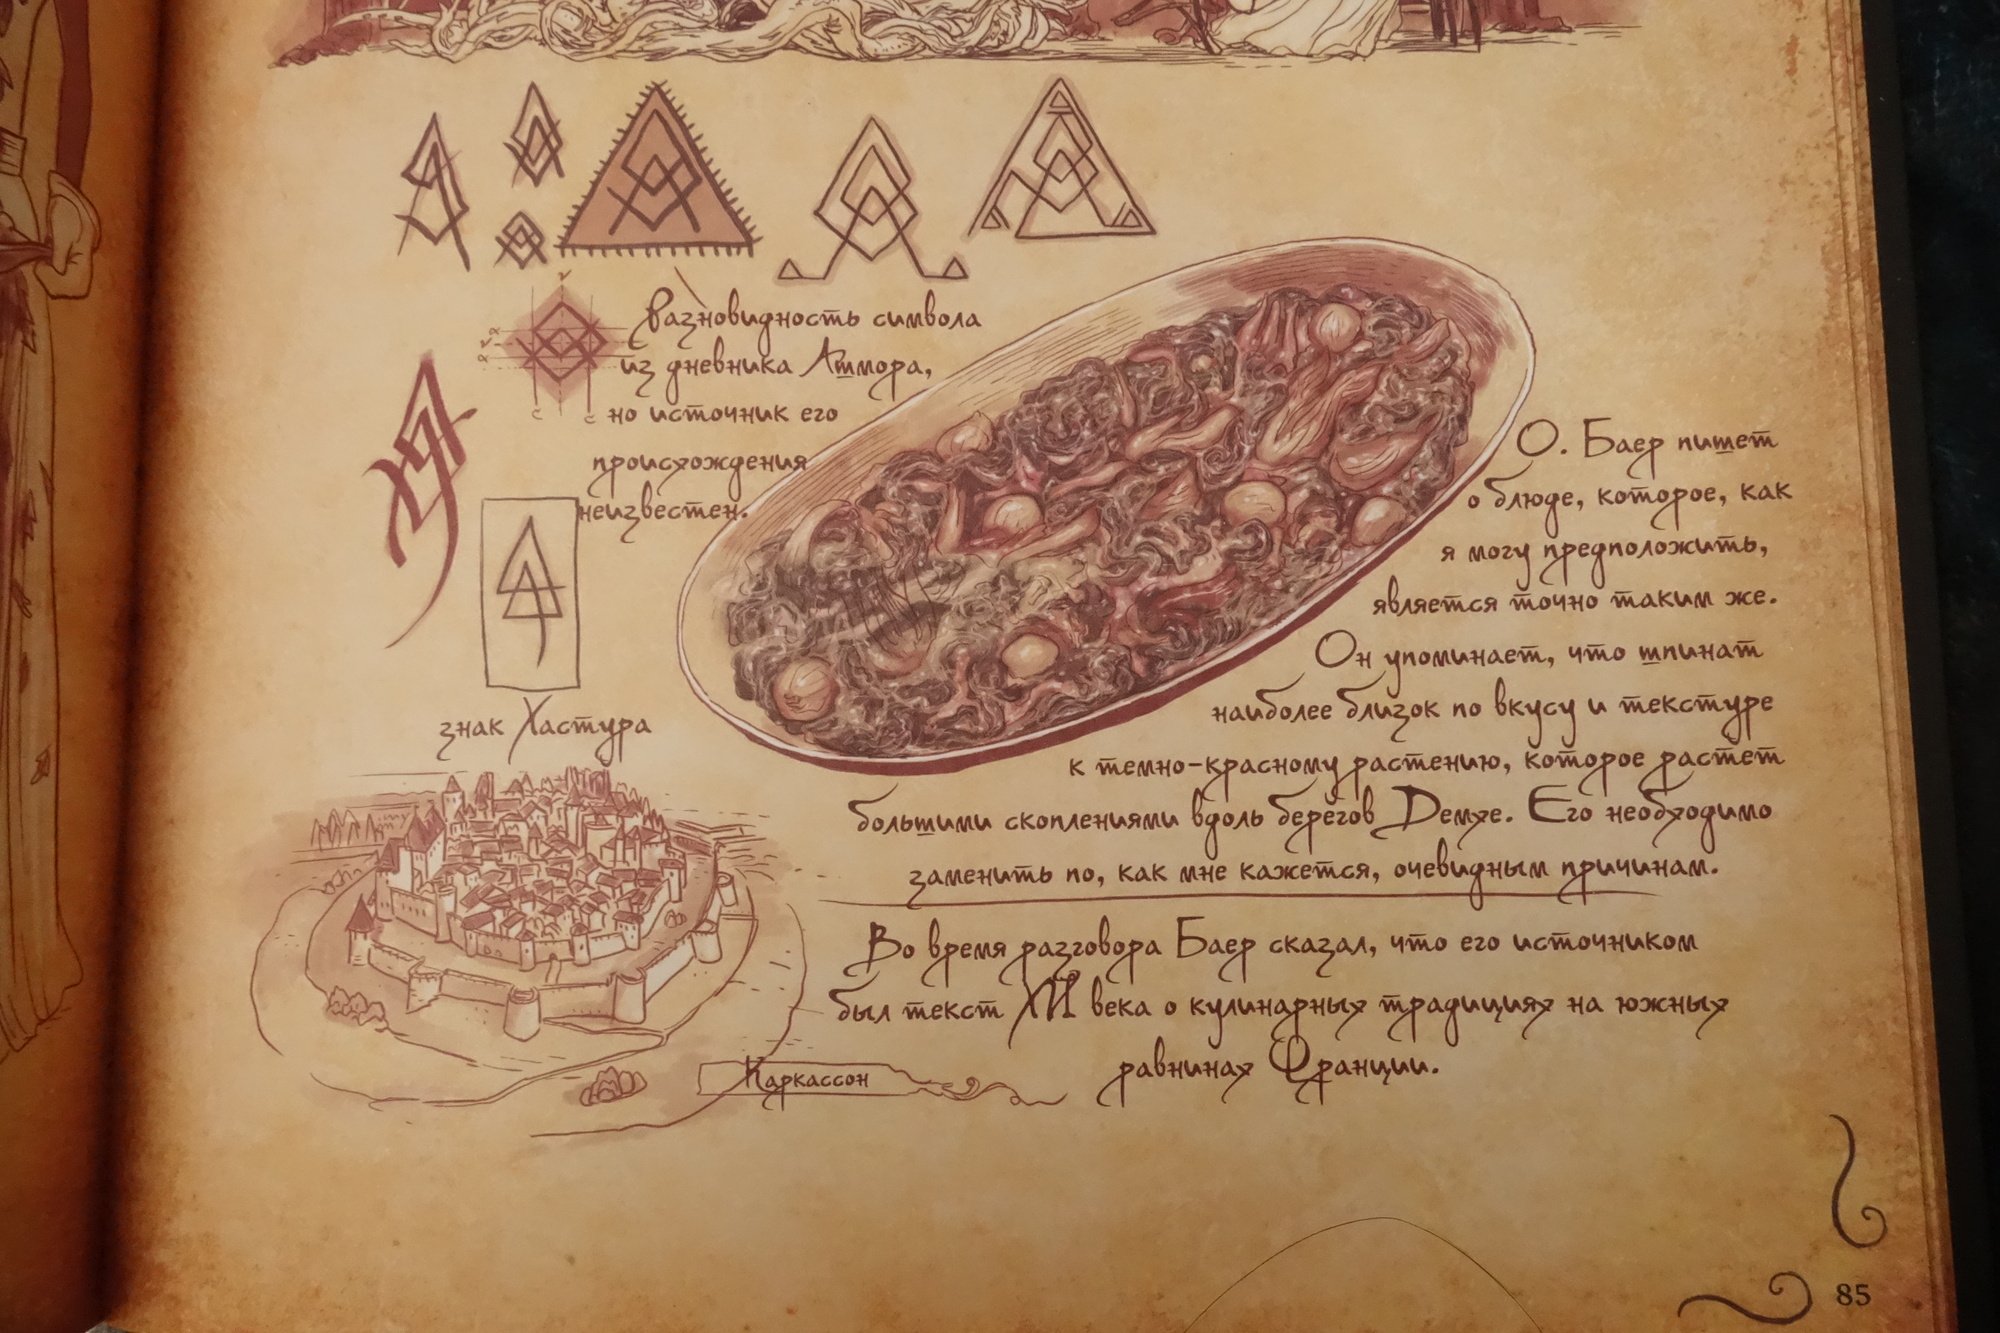 Разновидность символа
из дневника Атмора,
но источник его
происхождения
неизвестен.
знак Хастура
О. Баер пишет
о блюде, которое, как
я могу предположить,
является точно таким же.
Он упоминает, что шпинат
наиболее близок по вкусу и текстуре
к темно-красному растению, которое растет
большими скоплениями вдоль берегов Демхе. Его необходимо
заменить по, как мне кажется, очевидным причинам.
Во время разговора Баер сказал, что его источником
был текст XVI века о кулинарных традициях на южных
равнинах Франции.
Каркассон
85